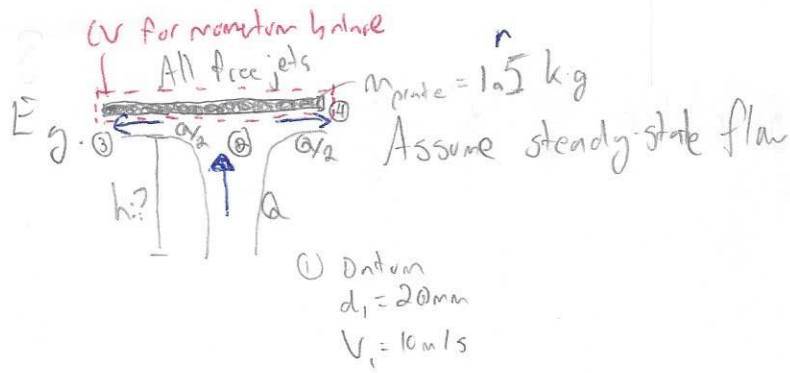 CV for momentum balance
All free jets
m plate = 1.5 kg
Eg.
③ Q/2 ② Q/2 ④
Assume steady-state flow
h:?
Q
① Datum
d₁ = 20mm
V₁ = 10 m/s